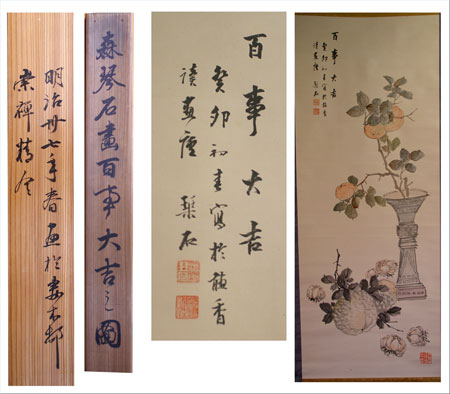 明治卅七年春画於
精舎
森琴石畫百事大吉之圖
百事大吉
癸卯初春寫於聽香
讀畫廬 琹石
百事大吉
癸卯初春寫於聽香
讀畫廬 琹石